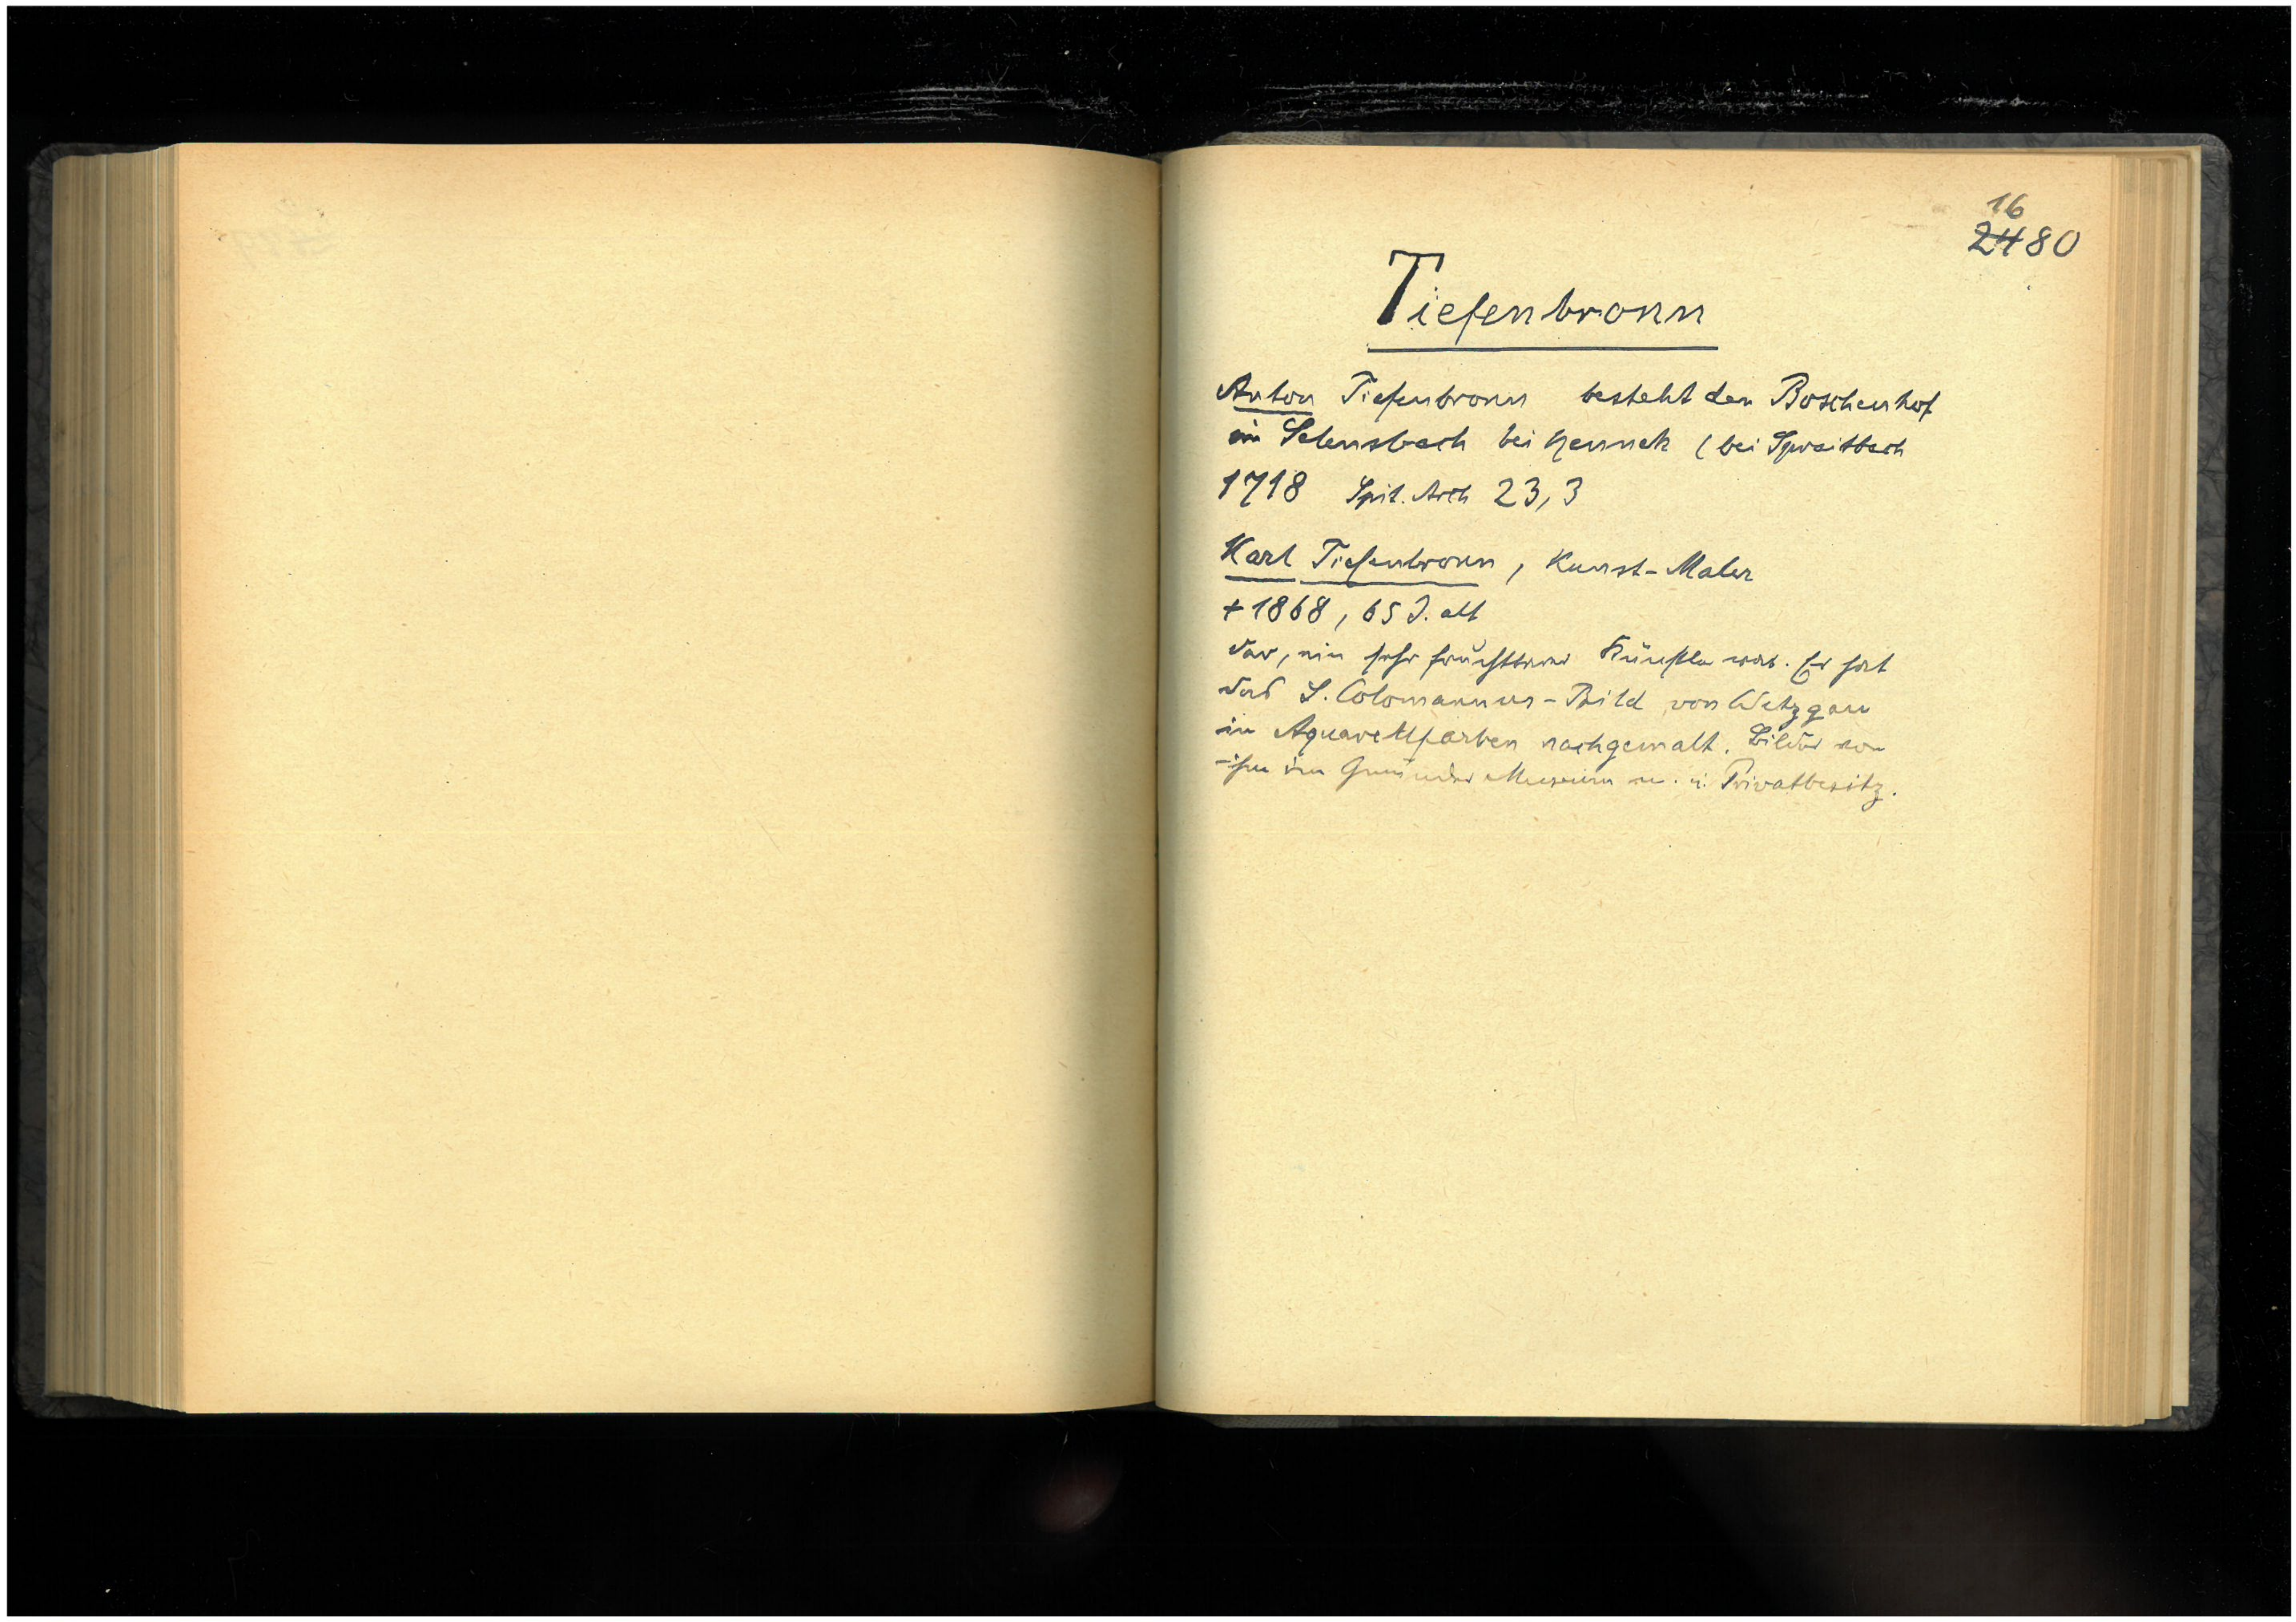 16
2480
Tiefenbronn
Anton Tiefenbronn besteht den Boschenhof
im Selensbach bei Hennek (bei Spraitbach
1718 Spit. Arch 23,3
Karl Tiefenbronn, Kunst-Maler
+ 1868, 65 J. alt
der, ein sehr fruchtbarer Künstler war. Er hat
das S. Colomannus-Bild von Wetzgau
in Aquarellfarben nachgemalt. Bilder von
ihm im Gmünder Museum u. i. Privatbesitz.